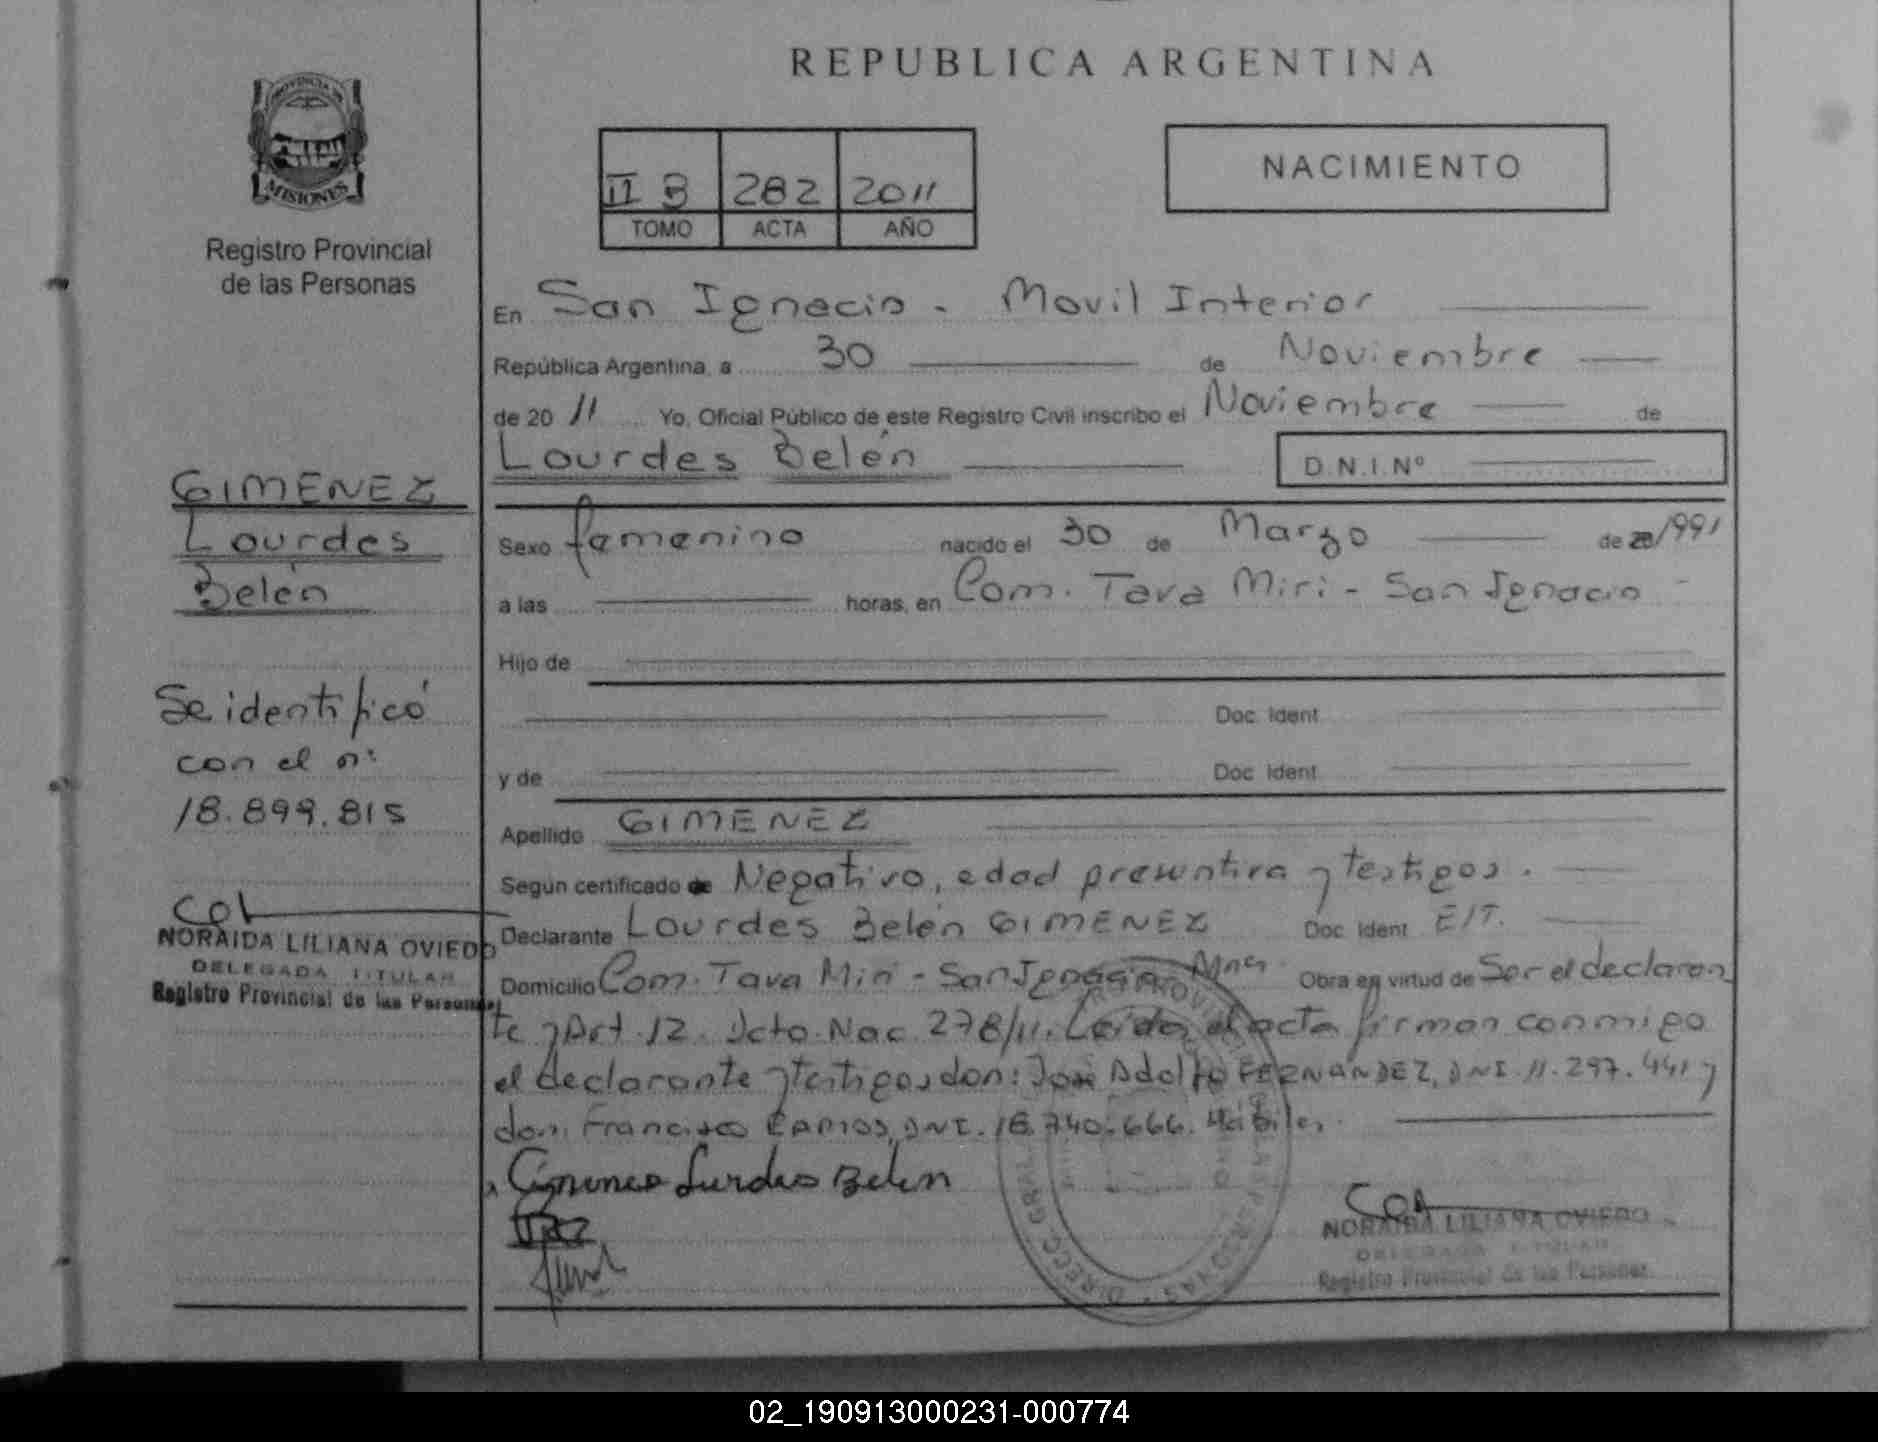 REPUBLICA ARGENTINA
PROVINCIA DE
MISIONES
Registro Provincial
de las Personas
II B 282 2011
TOMO ACTA AÑO
NACIMIENTO
En San Ignacio - Movil Interior
República Argentina, a 30 de Noviembre
de 20 11 Yo, Oficial Público de este Registro Civil inscribo el Noviembre de
Lourdes Belén D.N.I. Nº
GIMENEZ
Lourdes
Belén
Sexo femenino nacido el 30 de Marzo de 20/991
a las horas, en Com. Tava Miri - San Ignacio -
Hijo de
Doc. Ident
y de Doc. Ident
Se identificó
con el nº
18.899.815
Apellido GIMENEZ
Según certificado de Negativo, edad presuntiva y testigos.
Declarante Lourdes Belén GIMENEZ Doc. Ident E/T.
Domicilio Com. Tava Miri - San Ignacio Mnes. Obra en virtud de Ser el declaran
te y Art. 12. Dcto. Nac. 278/11. Leida el acta firman conmigo
el declarante y testigos don: José Adolfo FERNANDEZ, DNI. 11.297.441 y
don: Francisco RAMOS, DNI. 18.740.666. Hábiles.
NORAIDA LILIANA OVIEDO
DELEGADA TITULAR
Registro Provincial de las Personas
Gimenes Lurdes Belen
NORAIDA LILIANA OVIEDO
DELEGADA TITULAR
Registro Provincial de las Personas
02_190913000231-000774